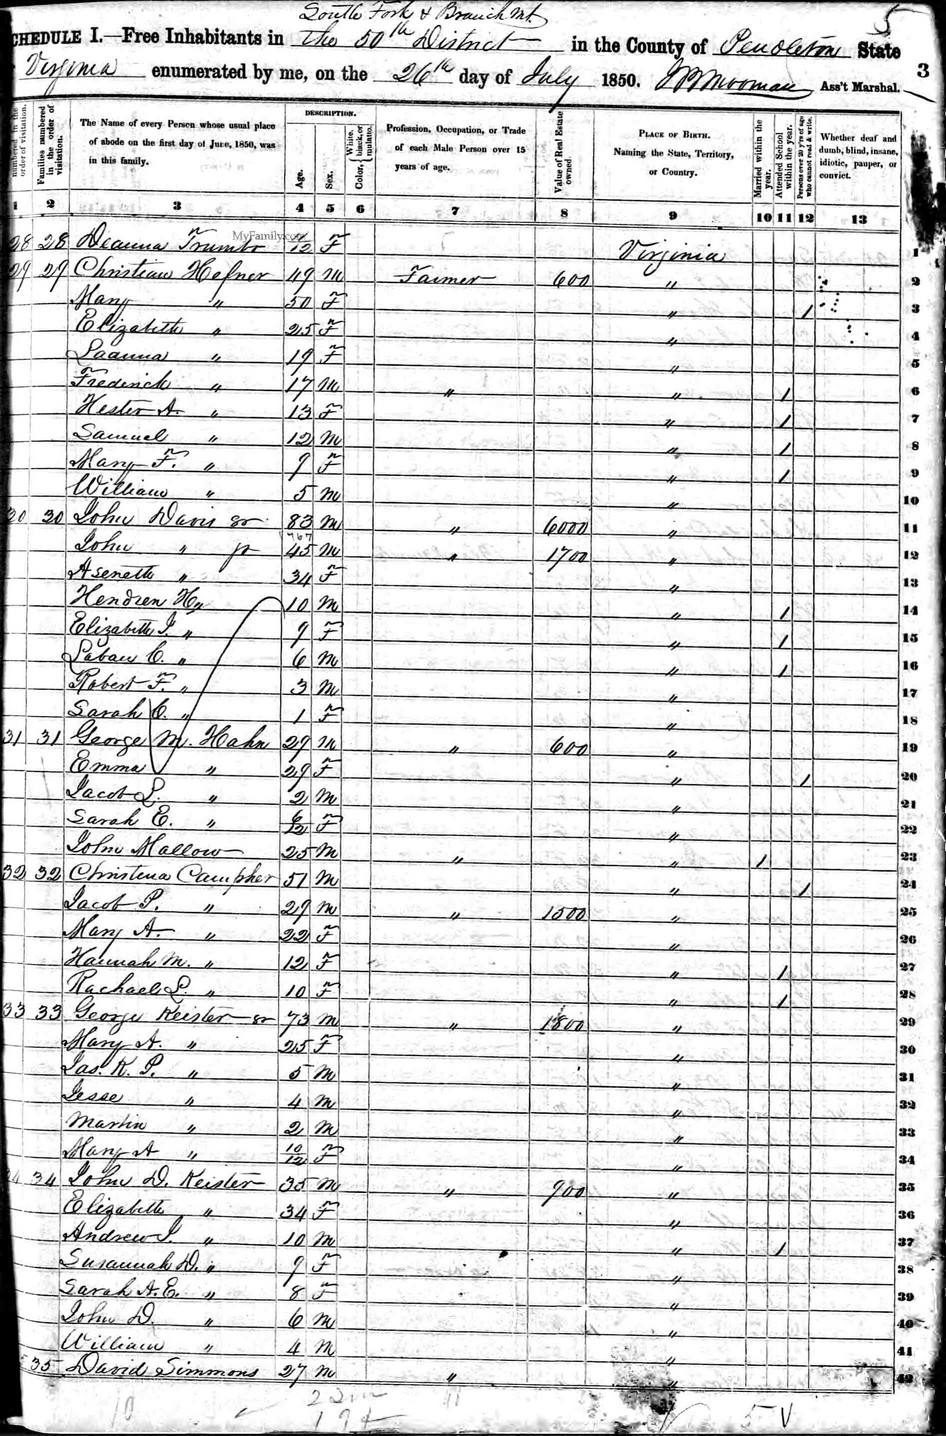 South Fork & Branch Mt.
5
SCHEDULE I.—Free Inhabitants in the 50th District in the County of Pendleton State
Virginia enumerated by me, on the 26th day of July 1850. Ass't Marshal.
3
DESCRIPTION.
numbered in the order of visitation. Families numbered in the order of visitation. The Name of every Person whose usual place of abode on the first day of June, 1850, was in this family. Age. Sex. Color, White, black, or mulatto. Profession, Occupation, or Trade of each Male Person over 15 years of age. Value of Real Estate owned. PLACE OF BIRTH. Naming the State, Territory, or Country. Married within the year. Attended School within the year. Persons over 20 y'rs of age who cannot read & write. Whether deaf and dumb, blind, insane, idiotic, pauper, or convict.
1 2 3 4 5 6 7 8 9 10 11 12 13
MyFamily.com
28 28 Deanna Trumbo /12 F Virginia 1
29 29 Christian Hefner 49 M Farmer 600 " 2
Mary " 50 F " 1 3
Elizabeth " 25 F " 4
Laanna " 19 F " 5
Frederick " 17 M " " 1 6
Hester A. " 13 F " 1 7
Samuel " 12 M " 1 8
Mary F. " 9 F " 1 9
William " 5 M " 10
30 30 John Davis sr 83 M " 6000 " 11
John " jr 45 M " 1700 " 12
Asenath " 34 F " 13
Hendren H. " 10 M " 1 14
Elizabeth J. " 9 F " 1 15
Laban C. " 6 M " 1 16
Robert F. " 3 M " 17
Sarah C. " 1 F " 18
31 31 George M. Hahn 29 M " 600 " 19
Emma " 29 F " 1 20
Jacob L. " 2 M " 21
Sarah E. " 6/12 F " 22
John Mallow 25 M " " 1 23
32 32 Christena Campher 51 M " 1 24
Jacob P. " 29 M " 1500 " 25
Mary A. " 22 F " 26
Hannah M. " 12 F " 1 27
Rachael L. " 10 F " 1 28
33 33 George Keister sr 73 M " 1800 " 29
Mary A. " 25 F " 30
Jas. K. P. " 5 M " 31
Jesse " 4 M " 32
Martin " 2 M " 33
Mary A " 10/12 F " 34
34 34 John D. Keister 35 M " 900 " 35
Elizabeth " 34 F " 36
Andrew J. " 10 M " 1 37
Susannah D. " 9 F " 38
Sarah A.E. " 8 F " 39
John D. " 6 M " 40
William " 4 M " 41
35 David Simmons 27 M " " 42
10 11 5